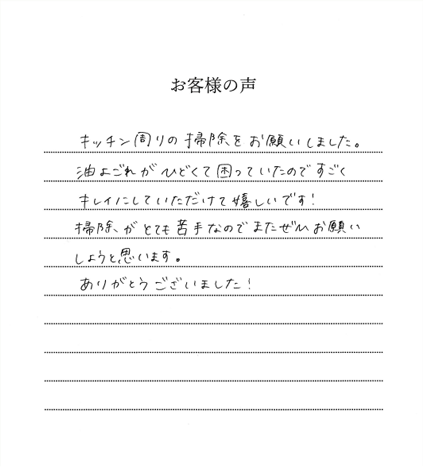 お客様の声
キッチン周りの掃除をお願いしました。
油よごれがひどくて困っていたのですごく
キレイにしていただけて嬉しいです!
掃除がとても苦手なのでまたぜひお願い
しようと思います。
ありがとうございました!